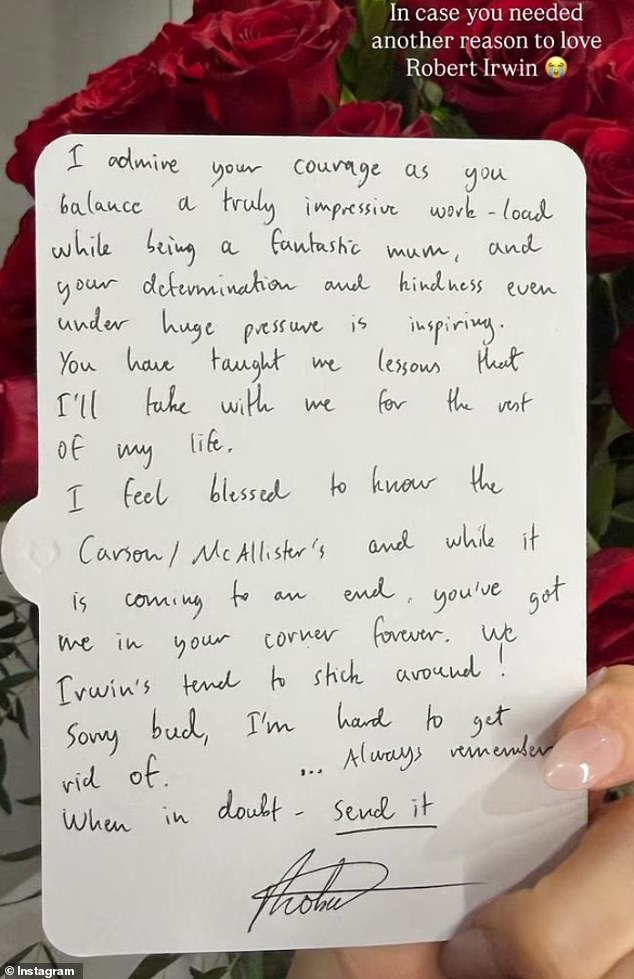 In case you needed
another reason to love
Robert Irwin 😭
I admire your courage as you
balance a truly impressive work-load
while being a fantastic mum, and
your determination and kindness even
under huge pressure is inspiring.
You have taught me lessons that
I'll take with me for the rest
of my life.
I feel blessed to know the
Carson/McAllister's and while it
is coming to an end, you've got
me in your corner forever. We
Irwin's tend to stick around!
Sorry bud, I'm hard to get
rid of. ... Always remember
When in doubt - send it
© Instagram